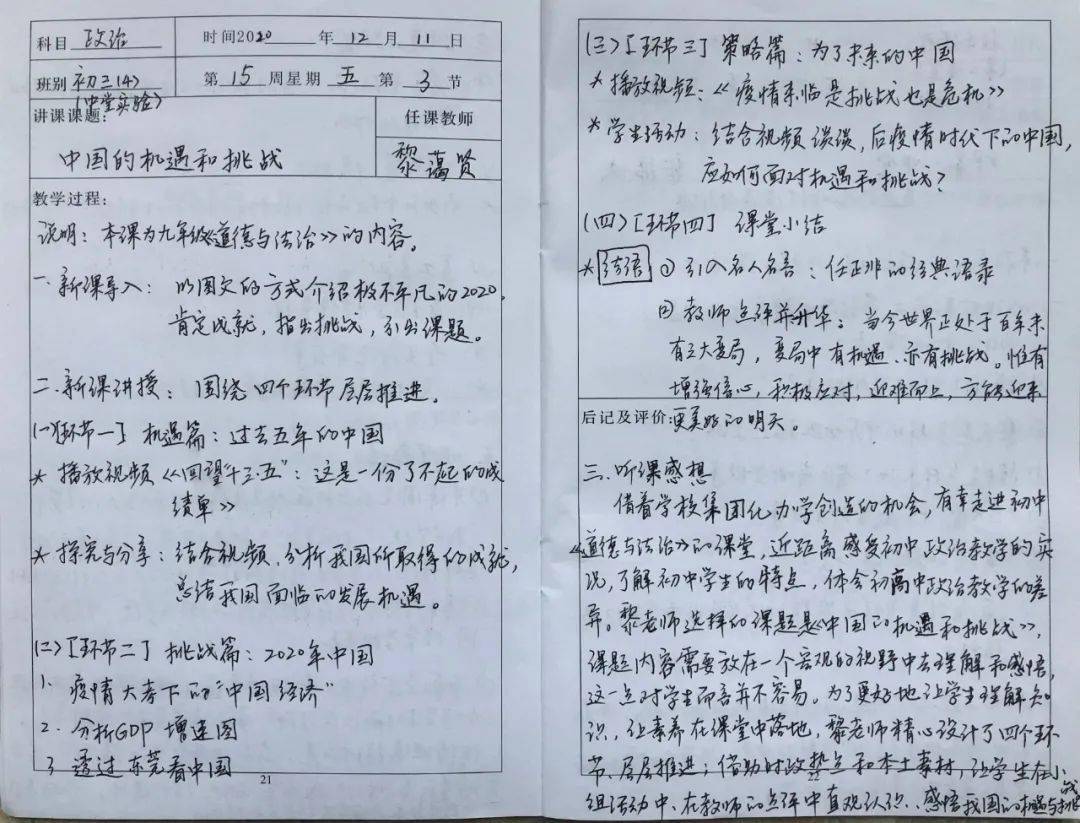 科目 政治 时间2020年12月11日
班别 初三(4) 第15周星期五第3节
(中堂实验)
讲课课题: 任课教师
中国的机遇和挑战 黎蔼贤
教学过程:
说明: 本课为九年级《道德与法治》的内容。
一.新课导入: 以图文的方式介绍极不平凡的2020,
肯定成就, 指出挑战, 引出课题。
二.新课讲授: 围绕四个环节层层推进。
(一)[环节一] 机遇篇: 过去五年的中国
* 播放视频《“回望十三五”: 这是一份了不起的成
绩单》
* 探究与分享: 结合视频, 分析我国所取得的成就,
总结我国面临的发展机遇。
(二)[环节二] 挑战篇: 2020年中国
1. 疫情大考下的“中国经济”
2. 分析GDP增速图
3 透过东莞看中国
21
(三)[环节三] 策略篇: 为了未来的中国
* 播放视频: 《疫情来临是挑战也是危机》
* 学生活动: 结合视频谈谈, 后疫情时代下的中国,
应如何面对机遇和挑战?
(四)[环节四] 课堂小结
* 结语 ① 引入名人名言: 任正非的经典语录
② 教师点评并升华。当今世界正处于百年未
有之大变局, 变局中有机遇、亦有挑战。惟有
增强信心, 积极应对, 迎难而上, 方能迎来
后记及评价: 更美好的明天。
三.听课感想
借着学校集团化办学创造的机会, 有幸走进初中
《道德与法治》的课堂, 近距离感受初中政治教学的实
况, 了解初中学生的特点, 体会初高中政治教学的差
异。黎老师选择的课题是《中国的机遇和挑战》,
课题内容需要放在一个宏观的视野中去理解和感悟,
这一点对学生而言并不容易。为了更好地让学生理解知
识, 让素养在课堂中落地, 黎老师精心设计了四个环
节、层层推进; 借助时政热点和本土素材, 让学生在小
组活动中、在教师的点评中直观认识、感悟我国的机遇与挑战